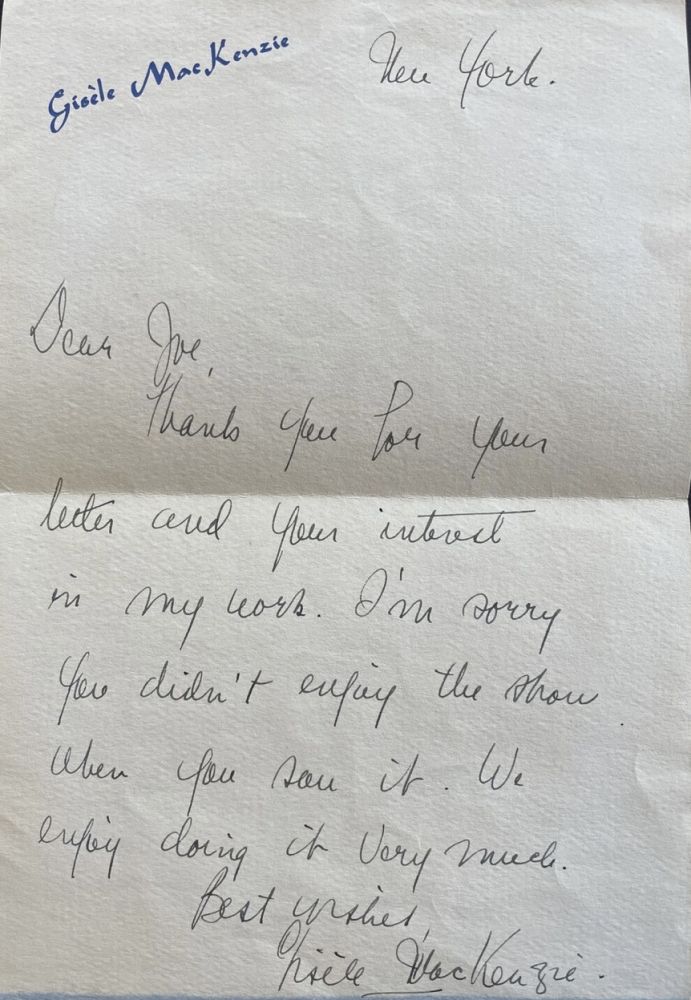 Gisèle MacKenzie
New York.
Dear Joe,
Thank you for your
letter and your interest
in my work. I'm sorry
you didn't enjoy the show
when you saw it. We
enjoy doing it very much.
Best wishes,
Gisèle MacKenzie.